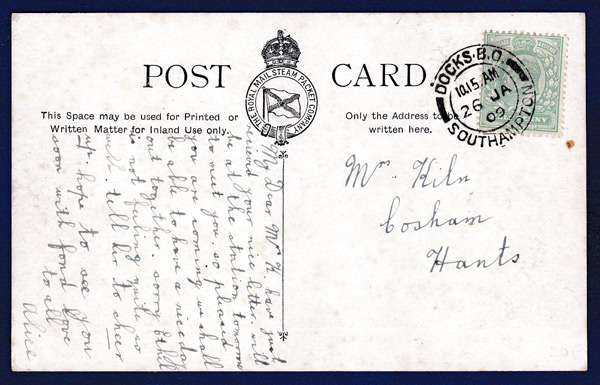 POST CARD.
THE ROYAL MAIL STEAM PACKET COMPANY
This Space may be used for Printed or
Written Matter for Inland Use only.
Only the Address to be
written here.
DOCKS.B.O.
10.15 AM
26 JA
09
SOUTHAMPTON
Mrs Kiln
Cosham
Hants
My Dear Mrs K have just
received your nice letter will
be at the station tomorrow
to meet you. so pleased
you are coming we shall
be able to have a nice day
out together. sorry
is not feeling quite so
well. tell her to cheer
up, hope to see you
soon with fond love
to all
Alice